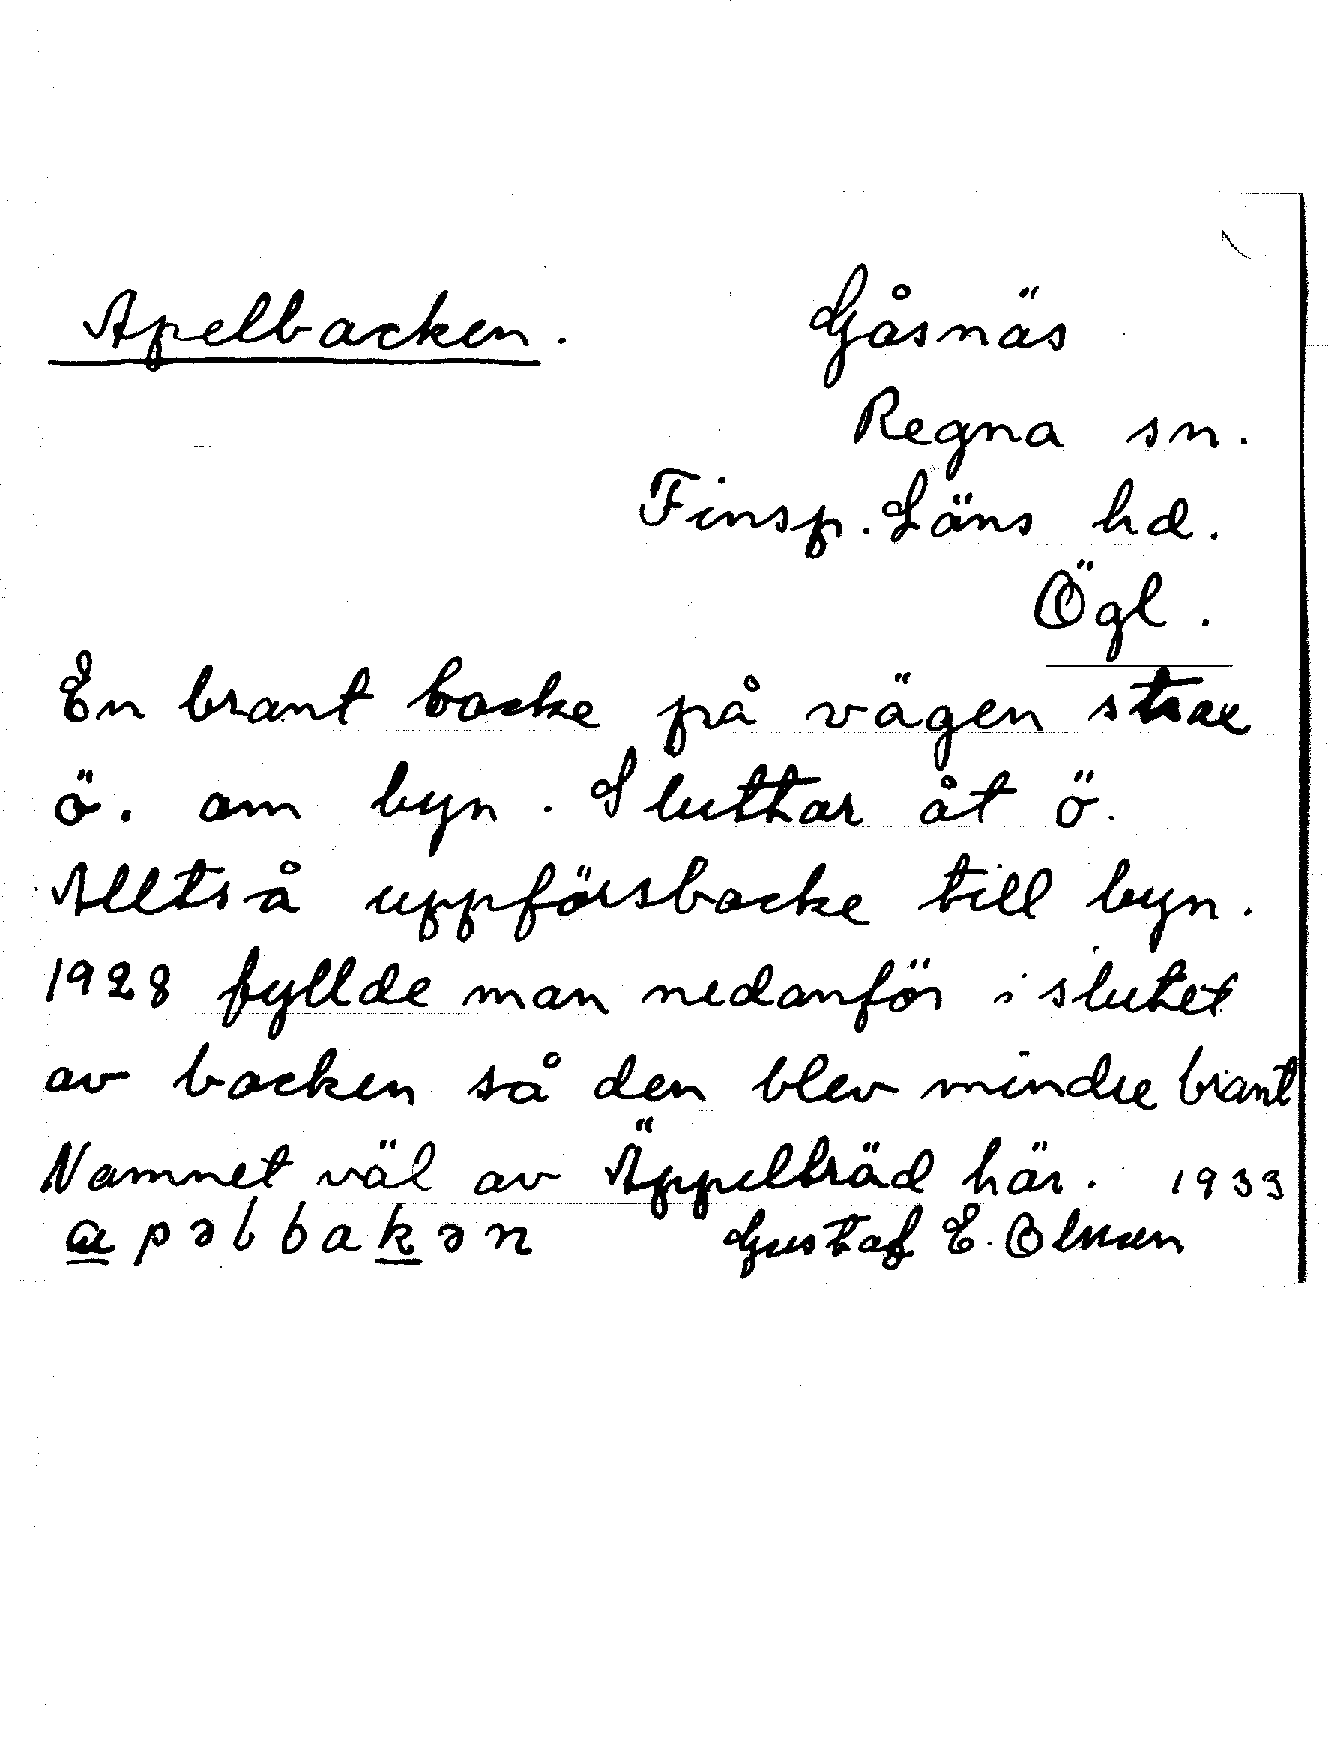 Apelbacken.
Gåsnäs
Regna sn.
Finsp. Läns hd.
Ögl.
En brant backe på vägen strax
ö. om byn. Sluttar åt ö.
Alltså uppförsbacke till byn.
1928 fyllde man nedanför i slutet
av backen så den blev mindre brant
Namnet väl av Äppelträd här. 1933
apəlbbakən Gustaf E. Olsson